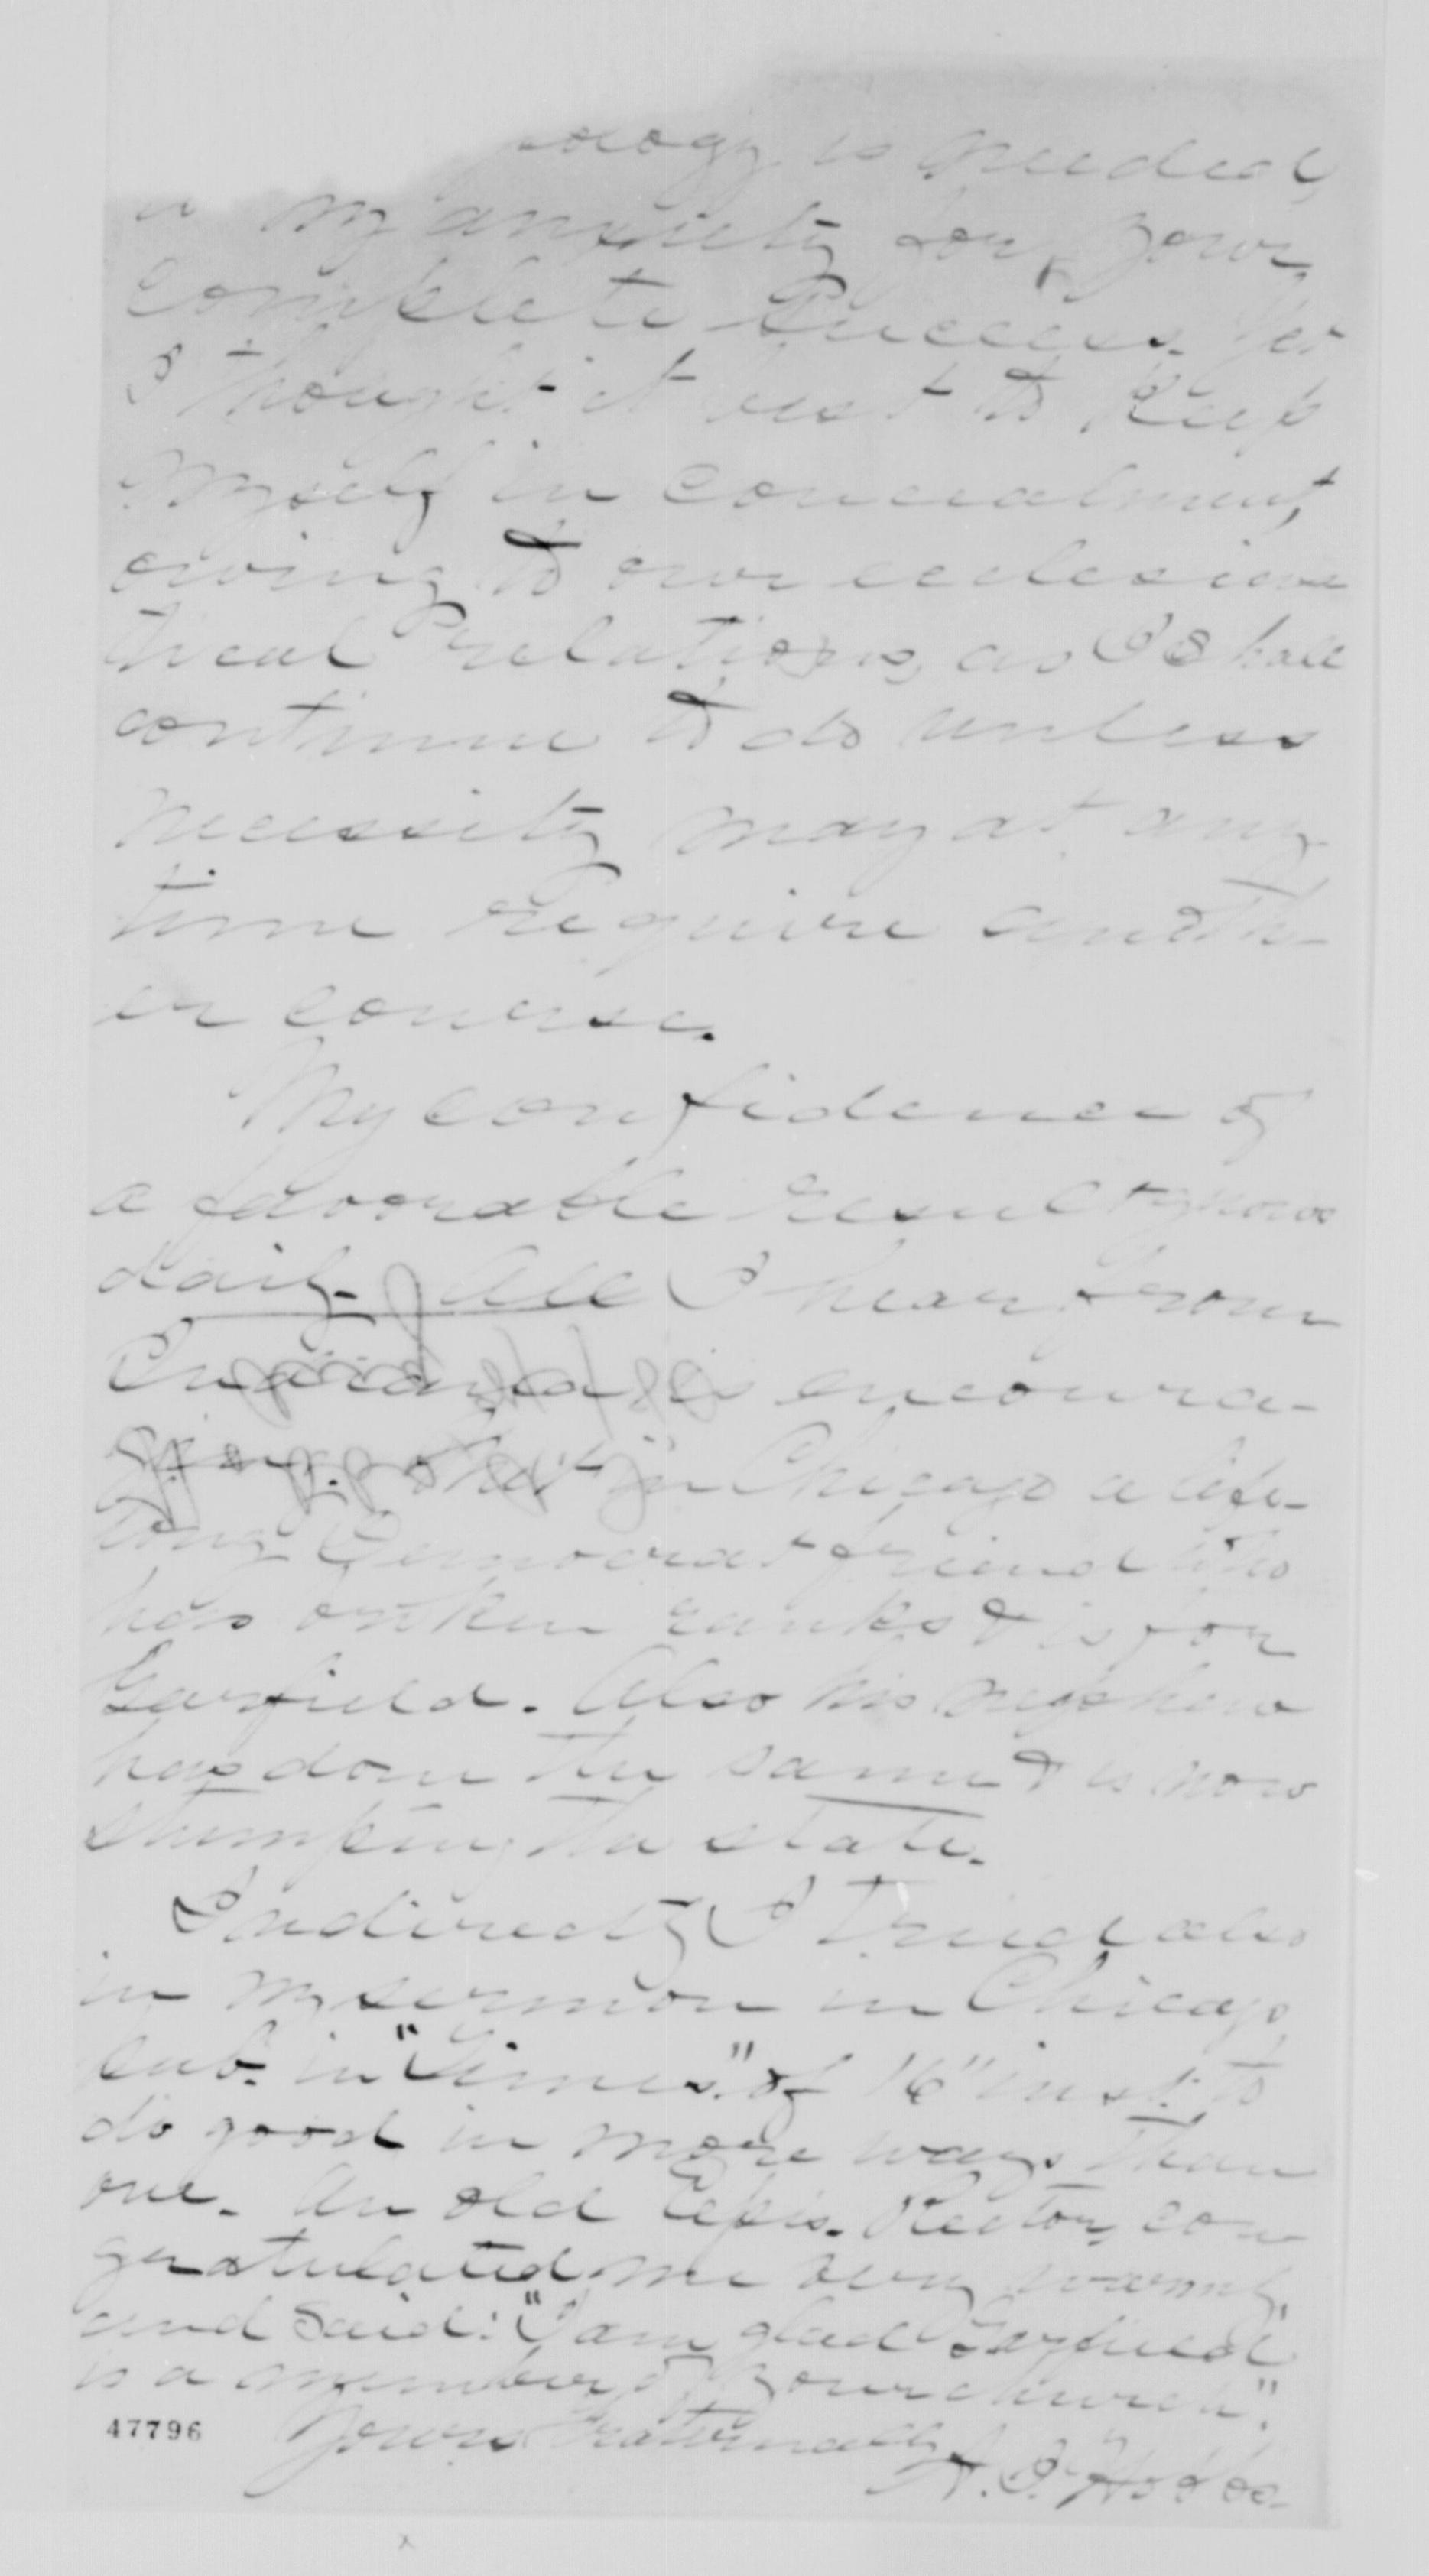 ology is needed,
my anxiety for your
complete success. Yet
I thought it best to keep
myself in concealment,
owing to our ecclesias
tical relations, as I shall
continue to do unless
necessity may at any
time require anoth-
er course.
My confidence of
a favorable result grows
daily. All I hear from
Indiana is encoura-
ging. in Chicago a life-
long Democrat friend who
has broken ranks & is for
Garfield. Also his nephew
has done the same & is now
stumping the state.
Indirectly I tried also
in my sermon in Chicago,
pub. in "Times" of 16" inst. to
do good in more ways than
one. An old Epis. Rector, con
gratulated me very warmly,
and said: "I am glad Garfield
is a member of your church".
Yours Fraternally
A. I. Hobbs.
47796